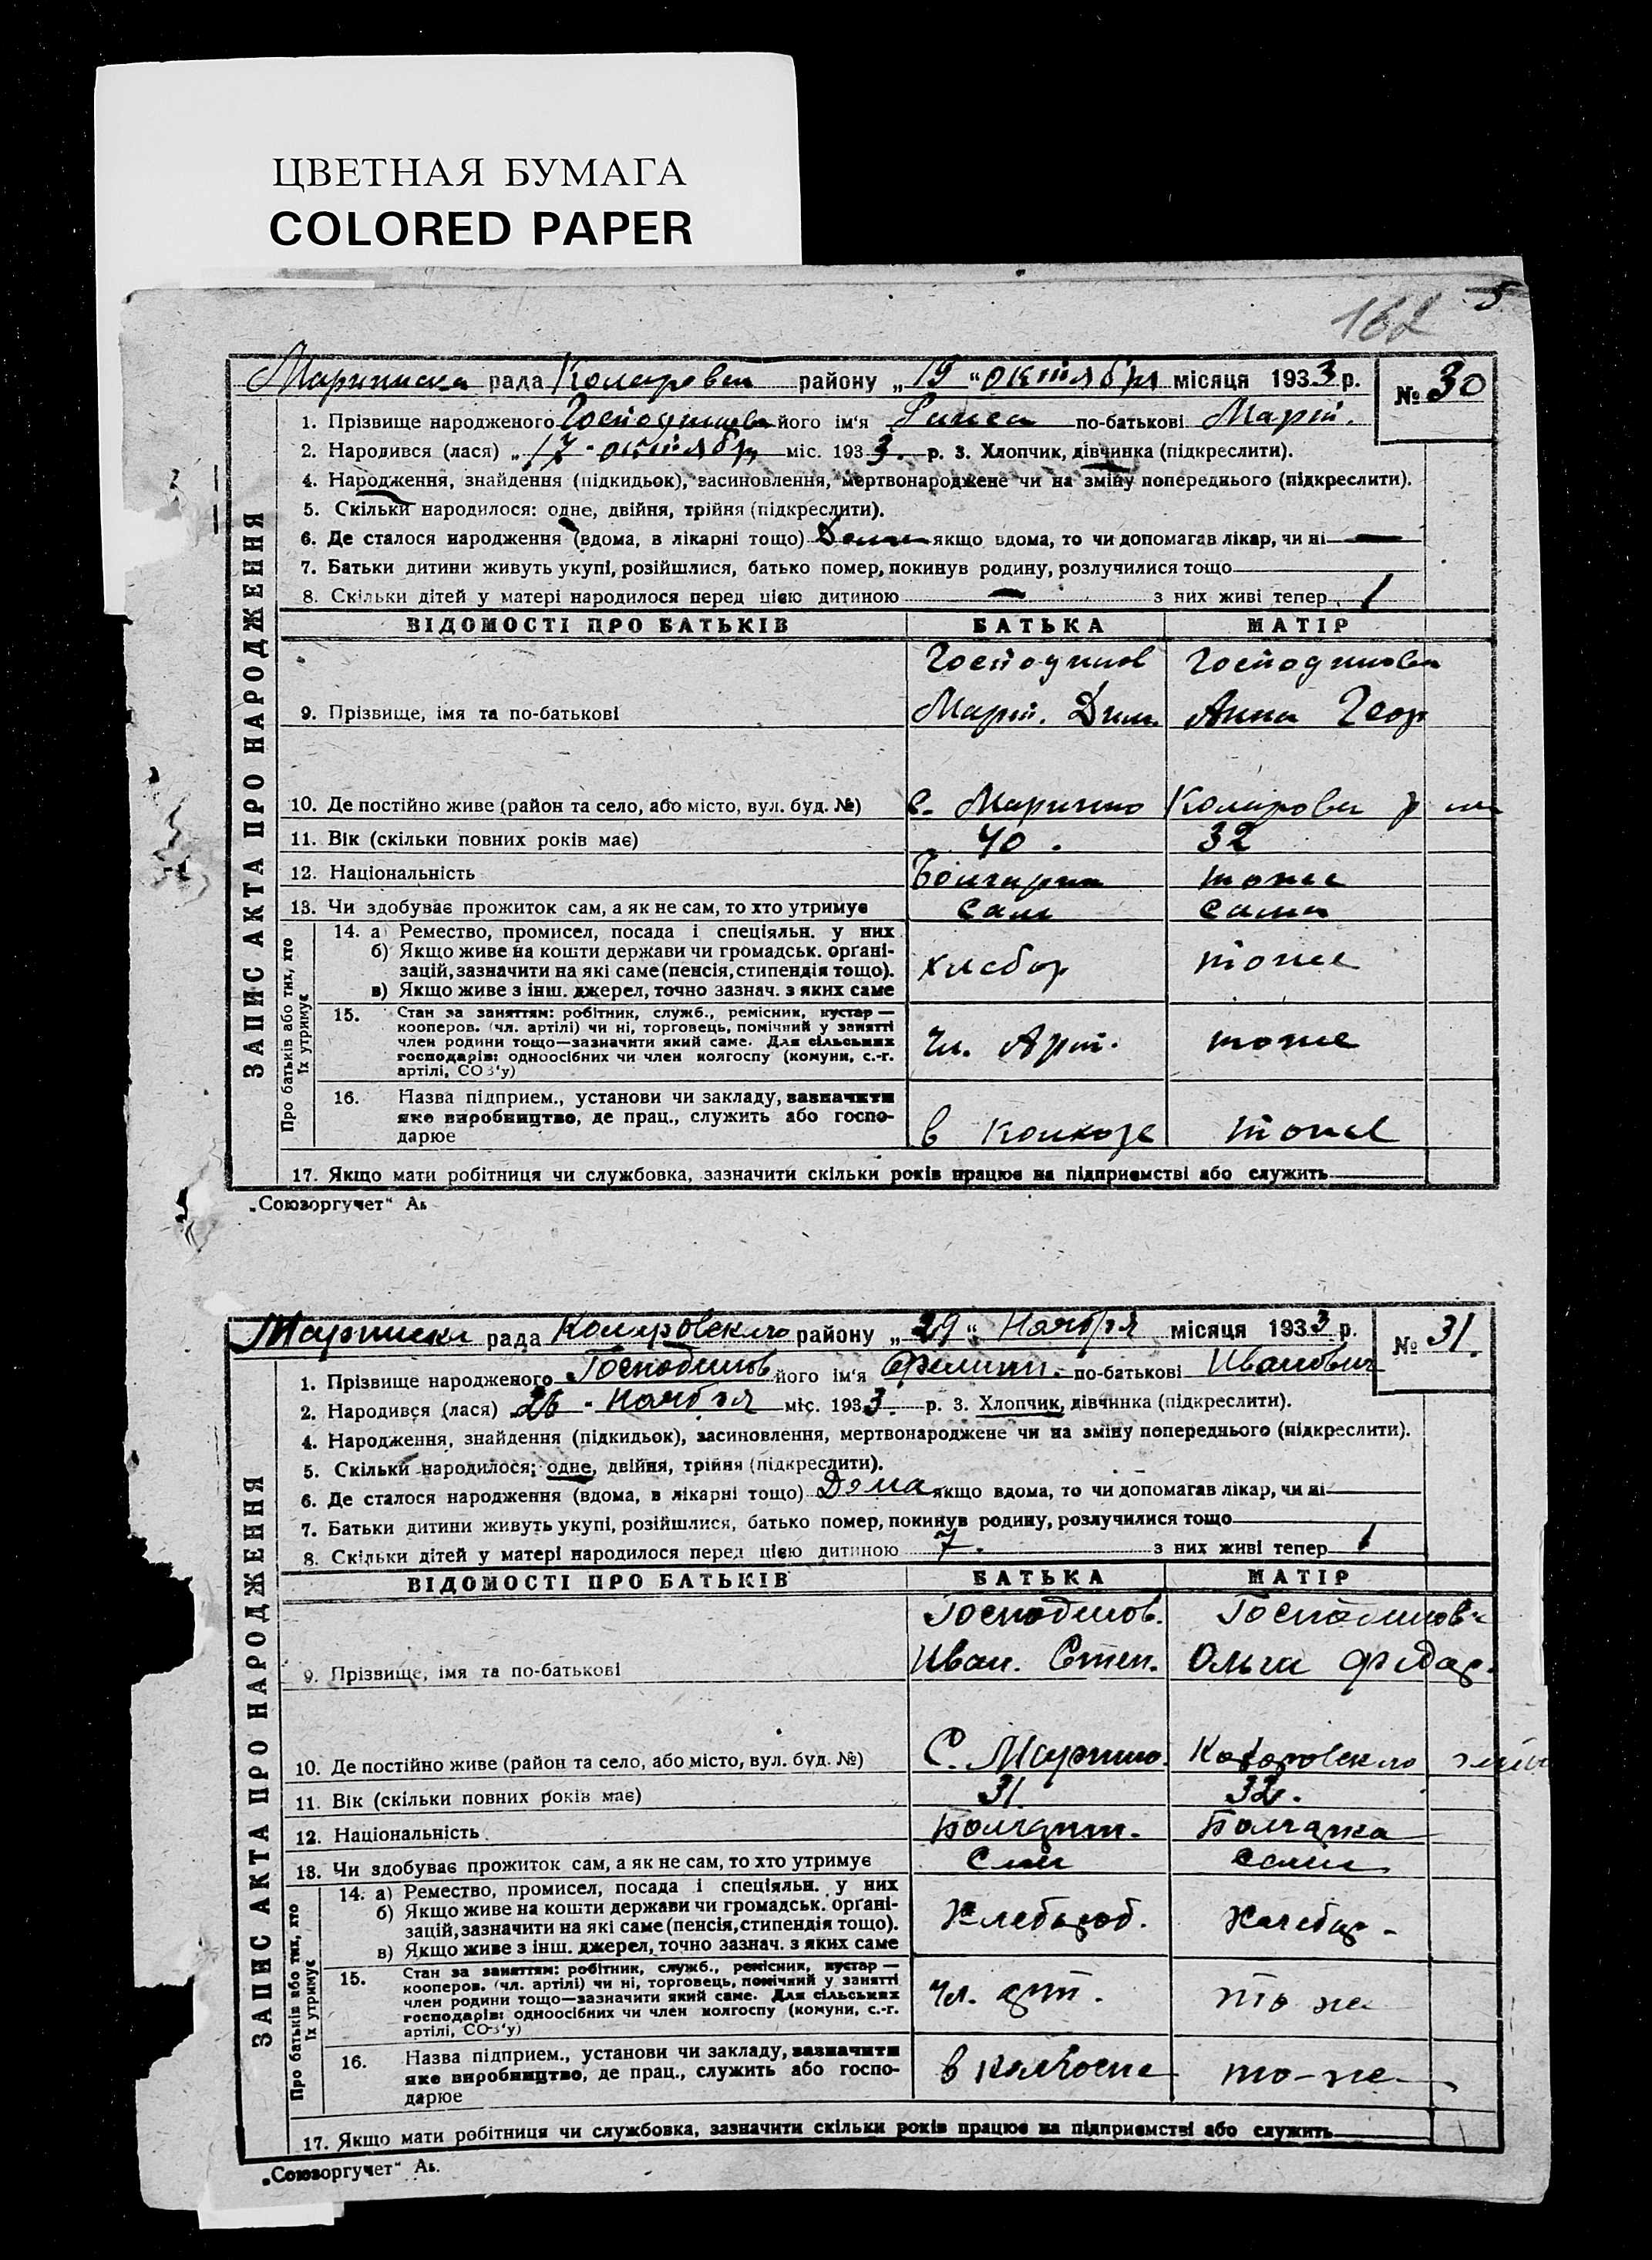 ЦВЕТНАЯ БУМАГА
COLORED PAPER
162 5
рада району „19“ октября місяця 1933 р. № 30
1. Прізвище народженого Господинова його ім'я по-батькові Март.
2. Народився (лася) „17 - октября міс. 1933. р. 3. Хлопчик, дівчинка (підкреслити).
4. Народження, знайдення (підкидьок), засиновлення, мертвонароджене чи на зміну попереднього (підкреслити).
5. Скільки народилося: одне, двійня, трійня (підкреслити).
6. Де сталося народження (вдома, в лікарні тощо) Дома якщо вдома, то чи допомагав лікар, чи ні —
7. Батьки дитини живуть укупі, розійшлися, батько помер, покинув родину, розлучилися тощо
8. Скільки дітей у матері народилося перед цією дитиною — з них живі тепер 1
ВІДОМОСТІ ПРО БАТЬКІВ БАТЬКА МАТІР
Господинов Господинова
9. Прізвище, імя та по-батькові Март. Дим. Анна Геор
10. Де постійно живе (район та село, або місто, вул. буд. №) с. Марытно Коларовск р на
11. Вік (скільки повних років має) 40. 32
12. Національність Болгарин тоже
13. Чи здобуває прожиток сам, а як не сам, то хто утримує сам сама
14. а) Ремество, промисел, посада і спеціяльн. у них
б) Якщо живе на кошти держави чи громадськ. орґані-
зацій, зазначити на які саме (пенсія, стипендія тощо). хлебор тоже
в) Якщо живе з інш. джерел, точно зазнач. з яких саме
15. Стан за заняттям: робітник, служб., ремісник, кустар —
кооперов. (чл. артілі) чи ні, торговець, помічний у занятті
член родини тощо—зазначити який саме. Для сільських
господарів: одноосібних чи член колгоспу (комуни, с.-г.
артілі, СОЗ'у) Чл. Арт. тоже
16. Назва підприєм., установи чи закладу, зазначити
яке виробництво, де прац., служить або госпо-
дарює в колхозе тоже
17. Якщо мати робітниця чи службовка, зазначити скільки років працює на підприємстві або служить
ЗАПИС АКТА ПРО НАРОДЖЕННЯ
Про батьків або тих, хто їх утримує
„Союзоргучет“
рада Коларовского району „29“ Ноября місяця 1933 р. № 31.
1. Прізвище народженого Господинов його ім'я Филипп. по-батькові Иванович
2. Народився (лася) 26 - Ноября міс. 1933. р. 3. Хлопчик, дівчинка (підкреслити).
4. Народження, знайдення (підкидьок), засиновлення, мертвонароджене чи на зміну попереднього (підкреслити).
5. Скільки народилося: одне, двійня, трійня (підкреслити).
6. Де сталося народження (вдома, в лікарні тощо) Дома якщо вдома, то чи допомагав лікар, чи ні
7. Батьки дитини живуть укупі, розійшлися, батько помер, покинув родину, розлучилися тощо
8. Скільки дітей у матері народилося перед цією дитиною 7. з них живі тепер 1
ВІДОМОСТІ ПРО БАТЬКІВ БАТЬКА МАТІР
Господинов. Господинова
9. Прізвище, імя та по-батькові Иван. Степ. Ольга Федор.
10. Де постійно живе (район та село, або місто, вул. буд. №) С. Марытно. Коларовского
11. Вік (скільки повних років має) 31. 32.
12. Національність Болгарин. Болгарка
13. Чи здобуває прожиток сам, а як не сам, то хто утримує Сам сама
14. а) Ремество, промисел, посада і спеціяльн. у них
б) Якщо живе на кошти держави чи громадськ. орґані-
зацій, зазначити на які саме (пенсія, стипендія тощо). Хлебороб. Хлебор-
в) Якщо живе з інш. джерел, точно зазнач. з яких саме
15. Стан за заняттям: робітник, служб., ремісник, кустар —
кооперов. (чл. артілі) чи ні, торговець, помічний у занятті
член родини тощо—зазначити який саме. Для сільських
господарів: одноосібних чи член колгоспу (комуни, с.-г.
артілі, СОЗ'у) Чл. арт. то же
16. Назва підприєм., установи чи закладу, зазначити
яке виробництво, де прац., служить або госпо-
дарює в колгоспе то-же
17. Якщо мати робітниця чи службовка, зазначити скільки років працює на підприємстві або служить
ЗАПИС АКТА ПРО НАРОДЖЕННЯ
Про батьків або тих, хто їх утримує
„Союзоргучет“